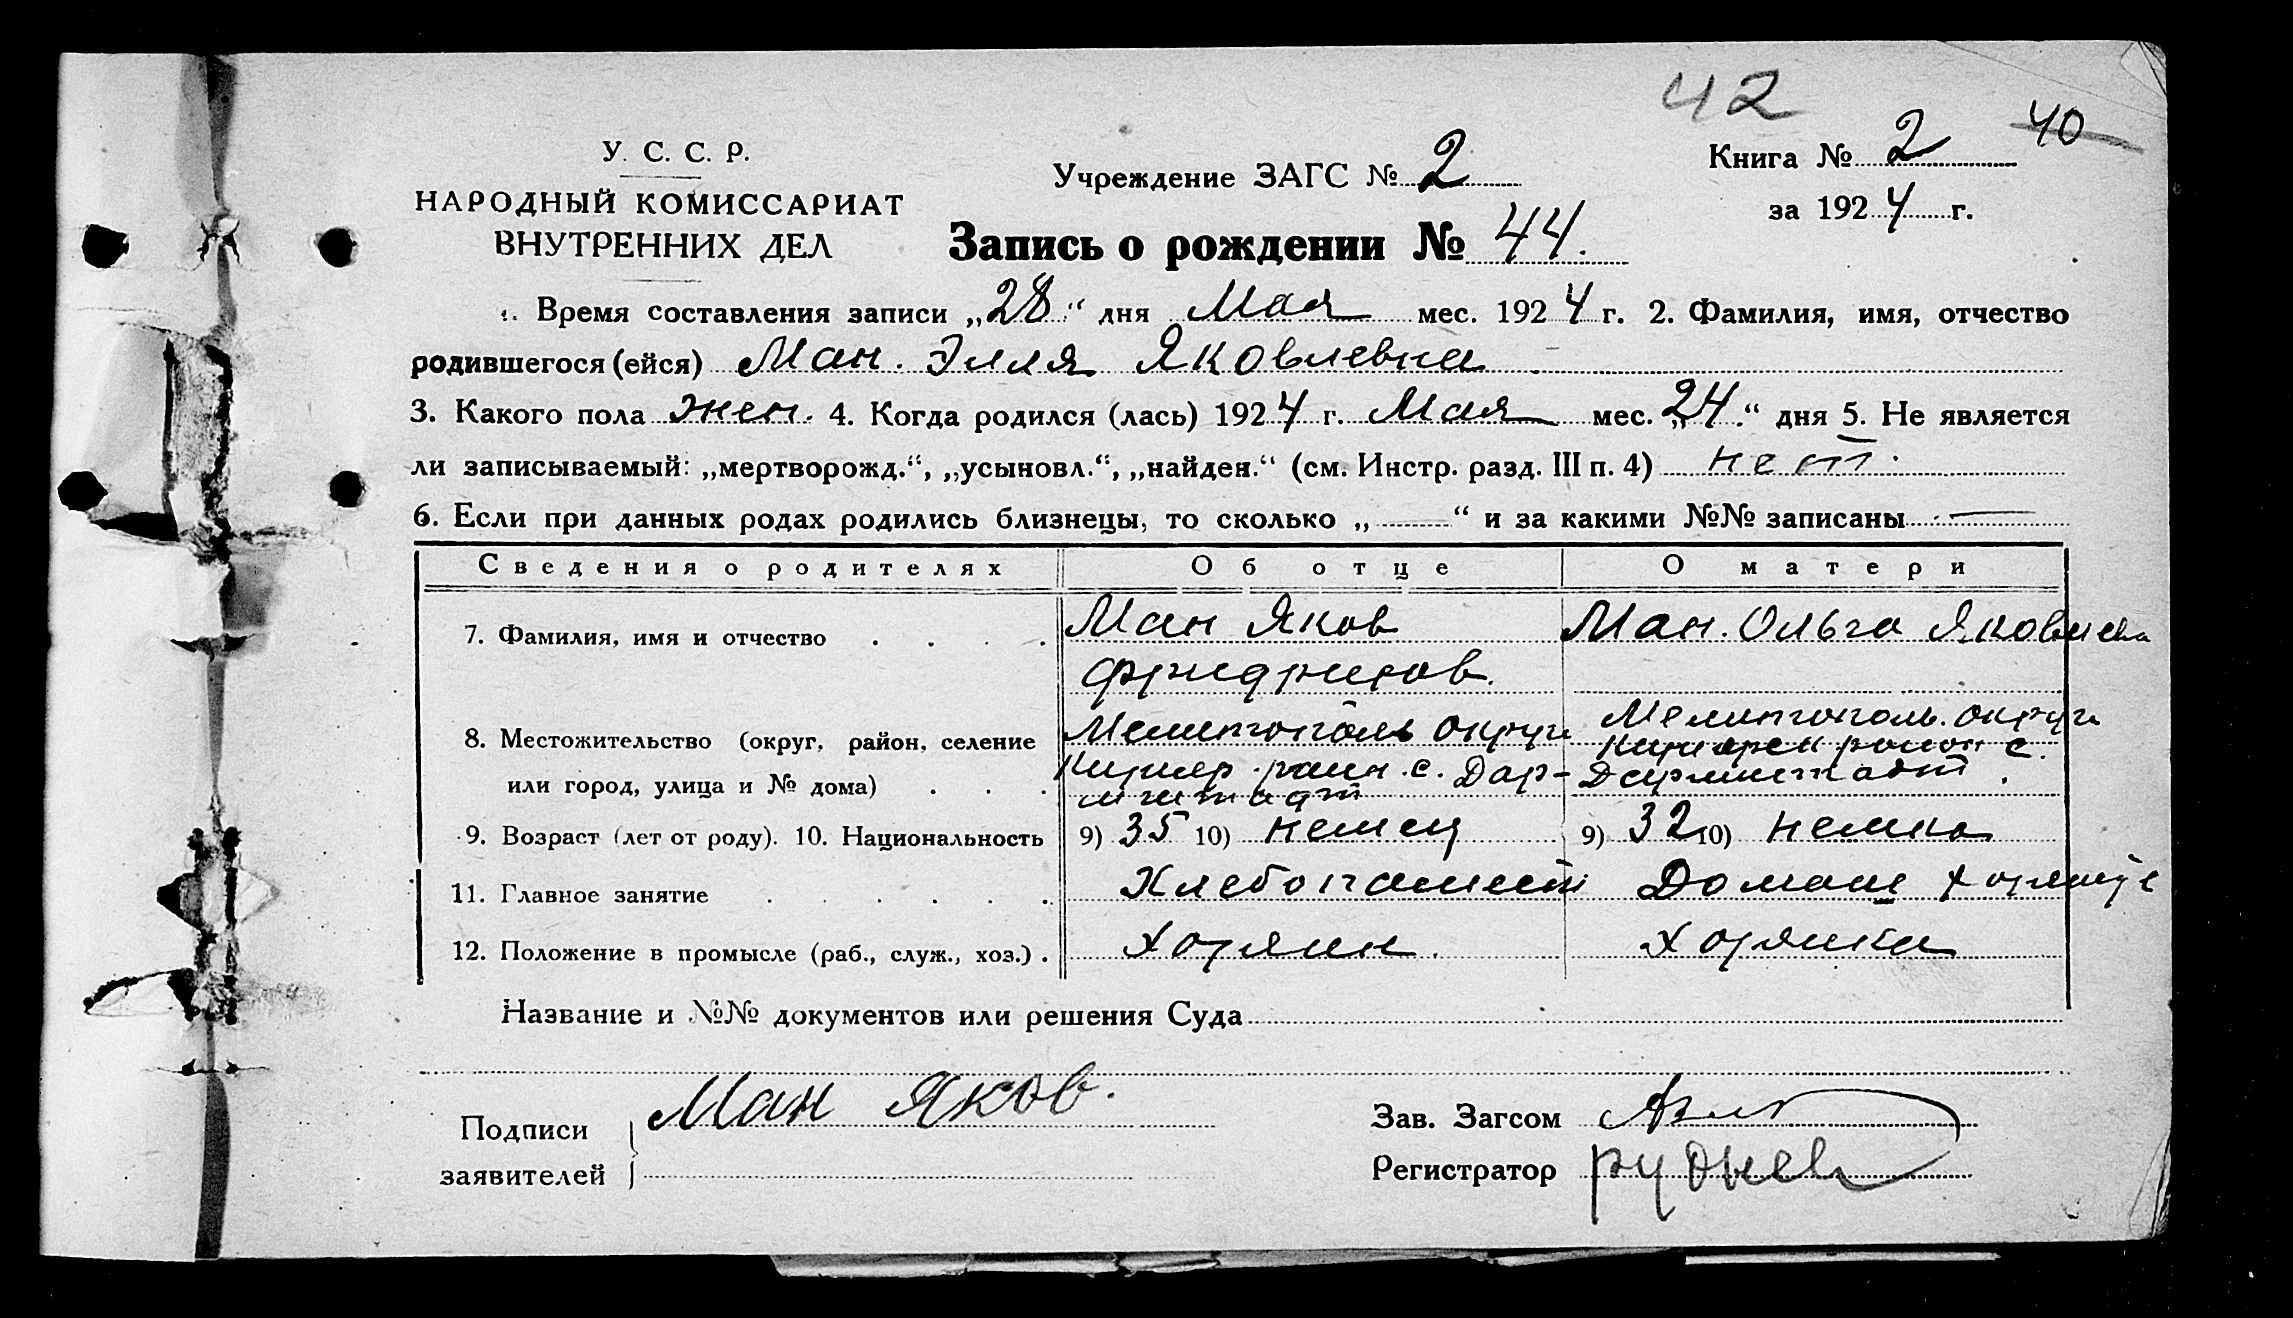 42
У. С. С. Р.
НАРОДНЫЙ КОМИССАРИАТ
ВНУТРЕННИХ ДЕЛ
Учреждение ЗАГС № 2
Книга № 2 40
за 1924 г.
Запись о рождении № 44.
Время составления записи „28“ дня Мая мес. 1924 г. 2. Фамилия, имя, отчество
родившегося (ейся) Ман. Элля Яковлевна
3. Какого пола жен. 4. Когда родился (лась) 1924 г. Мая мес. „24.“ дня 5. Не является
ли записываемый: „мертворожд.“, „усыновл.“, „найден.“ (см. Инстр. разд. III п. 4) нет.
6. Если при данных родах родились близнецы, то сколько „ “ и за какими №№ записаны —
Сведения о родителях Об отце О матери
7. Фамилия, имя и отчество Ман Яков Ман. Ольга Яковлевна
Фридрихов.
8. Местожительство (округ, район, селение Мелитополь округи Мелитополь. округи
или город, улица и № дома) с. Дар- район с.
мштадт Дармштадт.
9. Возраст (лет от роду). 10. Национальность 9) 35 10) немец 9) 32 10) немка
11. Главное занятие Хлебопашест Домаш
12. Положение в промысле (раб., служ., хоз.) . Хозяин. Хозяйка
Название и №№ документов или решения Суда
Подписи Ман Яков.
заявителей
Зав. Загсом
Регистратор Руднев